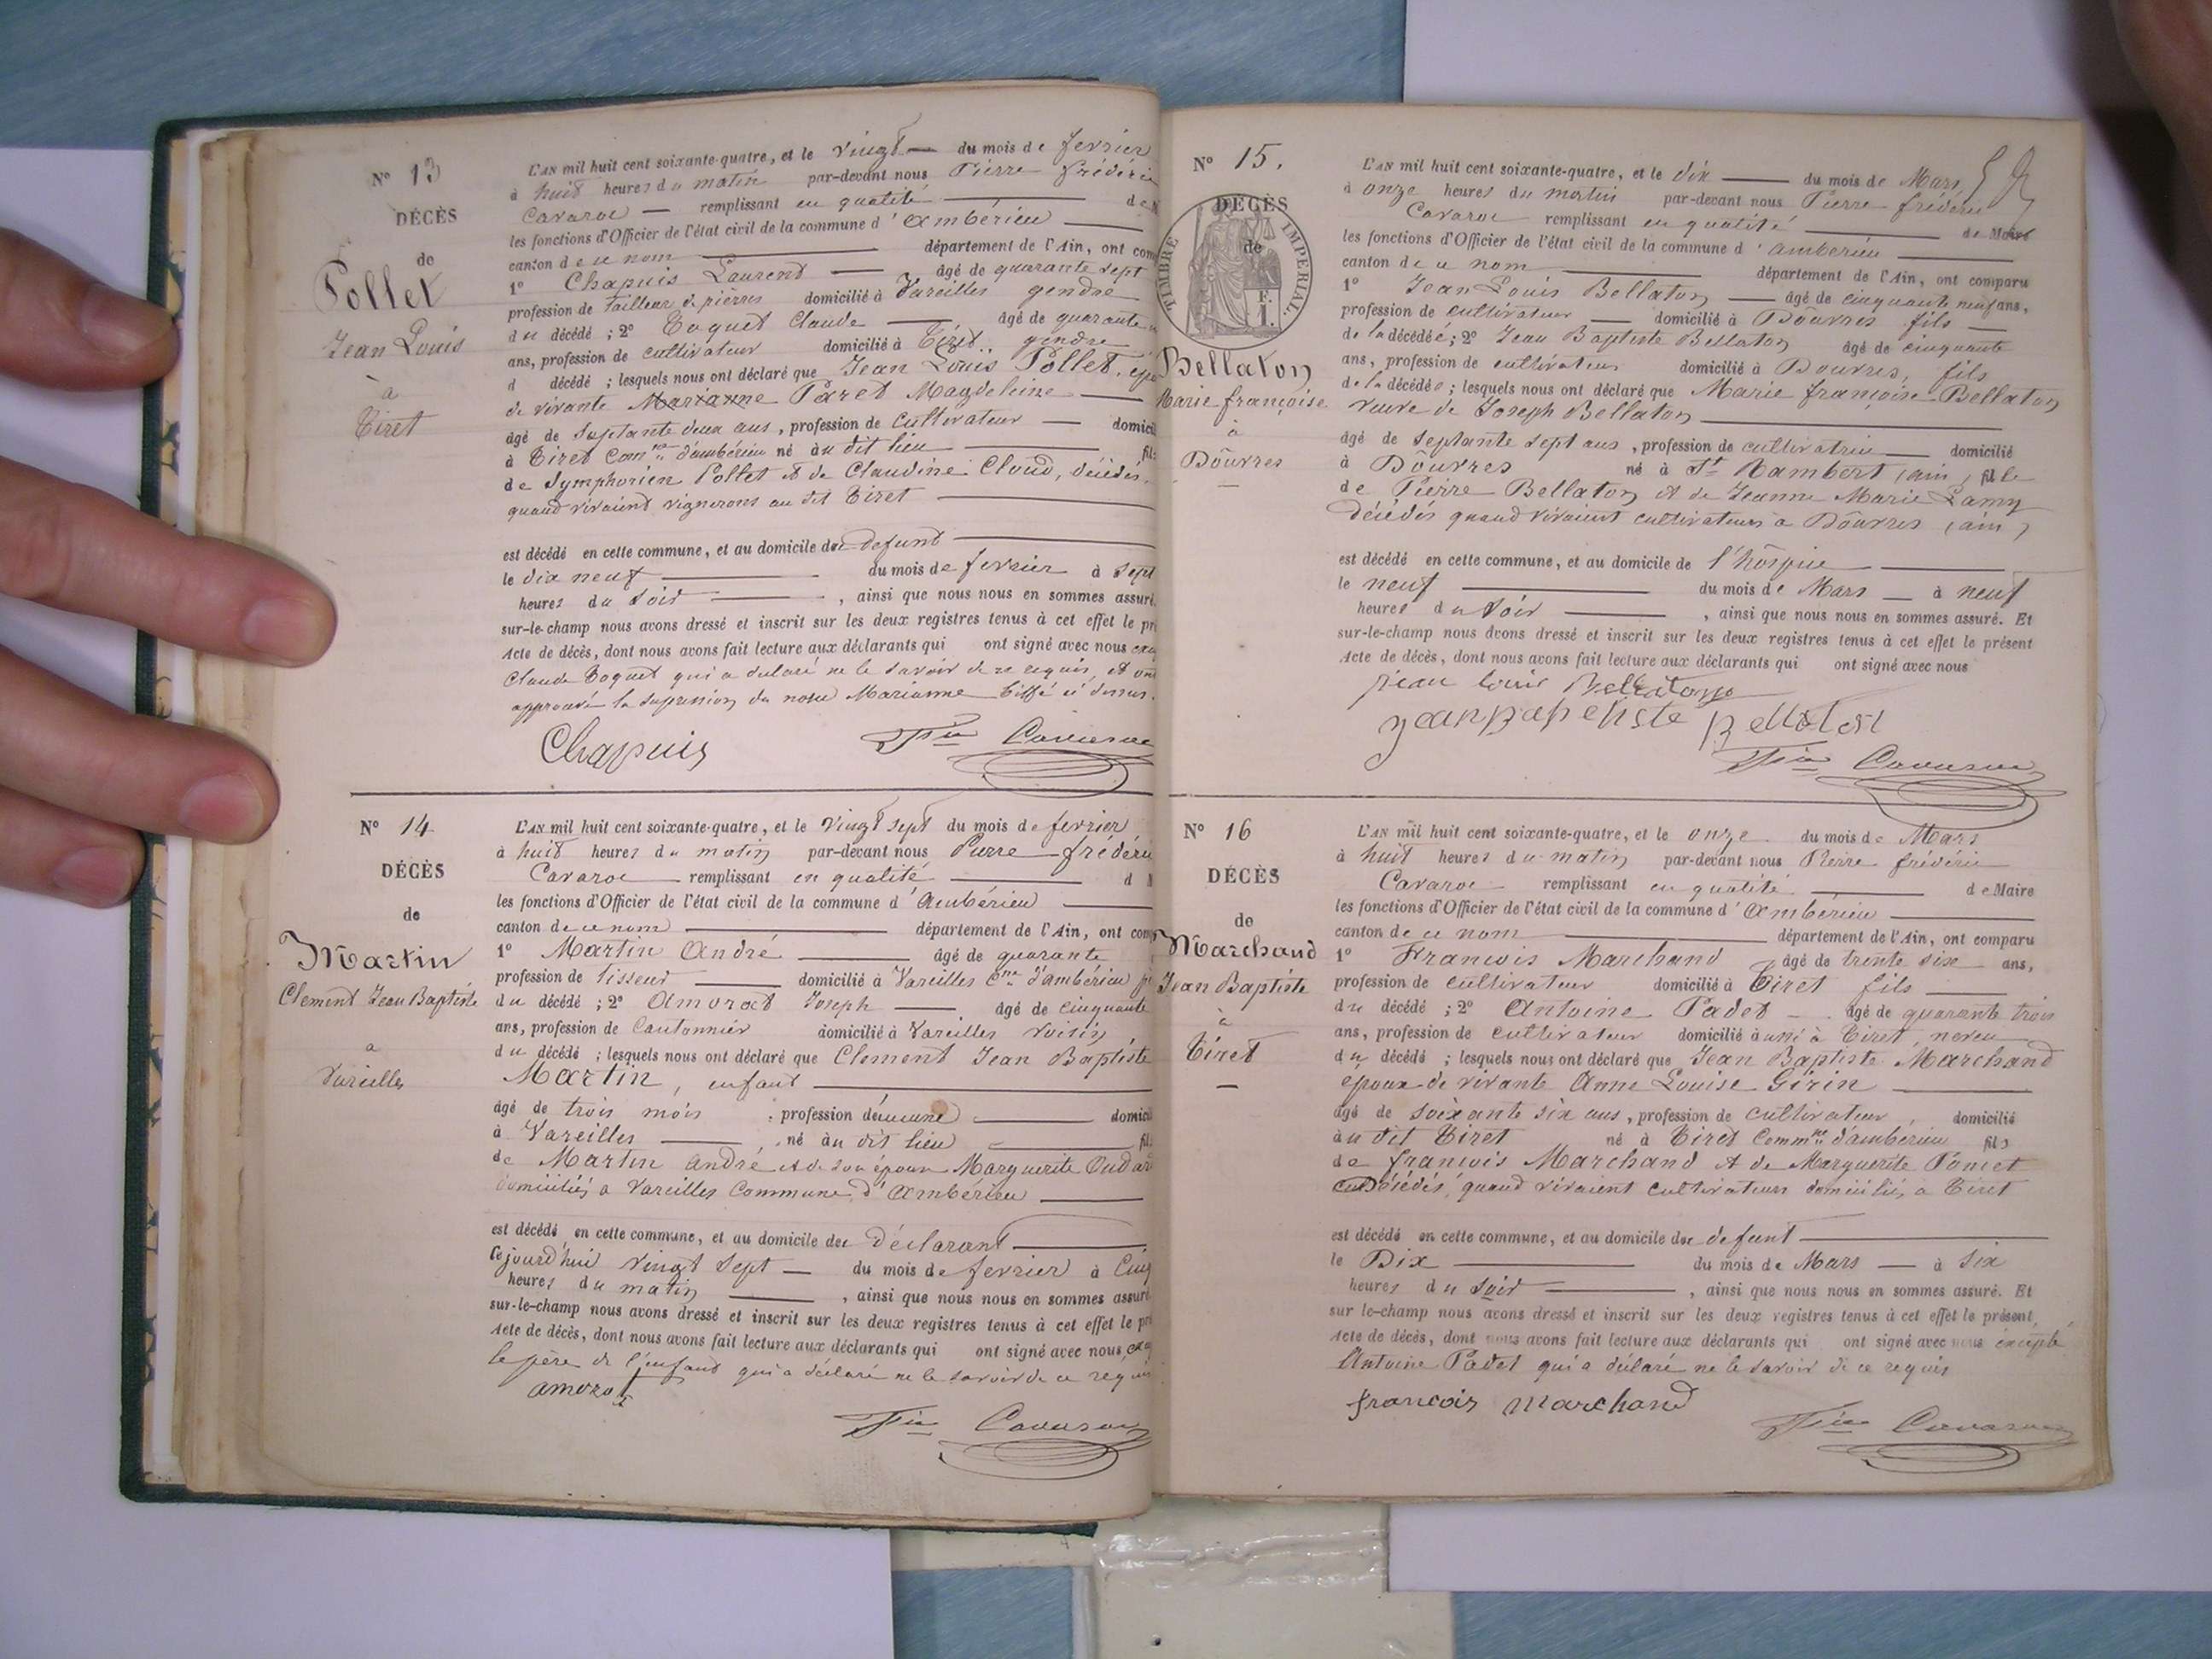 N° 13
DÉCÈS
de
Pollet
Jean Louis
à
Tiret
L'AN mil huit cent soixante-quatre, et le vingt du mois de fevrier
à huit heures du matin par-devant nous Pierre fréderic
Cavaroc remplissant en qualité de
les fonctions d'Officier de l'état civil de la commune d'ambérieu
canton de ce nom département de l'Ain, ont com
1° Chapuis Laurent âgé de quarante sept
profession de tailleur de pierres domicilié à Vareilles gendre
du décédé ; 2° Coquet Claude âgé de quarante
ans, profession de cultivateur domicilié à Tiret gendre
d décédé ; lesquels nous ont déclaré que Jean Louis Pollet, epo
de vivante Marianne Paret Magdeleine
âgé de septante deux ans, profession de cultivateur domicil
à Tiret comne d'ambérieu né au dit lieu fils
de Symphorien Pollet et de Claudine Cloud, décédés
quand vivaient vignerons au dit Tiret
est décédé en cette commune, et au domicile du defunt
le dix neuf du mois de fevrier à sept
heures du soir , ainsi que nous nous en sommes assuré.
sur-le-champ nous avons dressé et inscrit sur les deux registres tenus à cet effet le pré
Acte de décès, dont nous avons fait lecture aux déclarants qui ont signé avec nous
Claude Coquet qui a déclaré ne le savoir de ce requis, et ont
approuvé la supression du nom Marianne biffé ci dessus.
Chapuis Fric Cavaroc
N° 14
DÉCÈS
de
Martin
Clement Jean Baptiste
a
Vareilles
L'AN mil huit cent soixante-quatre, et le vingt sept du mois de fevrier
à huit heures du matin par-devant nous Pierre fréderic
Cavaroc remplissant en qualité d
les fonctions d'Officier de l'état civil de la commune d'Ambérieu
canton de ce nom département de l'Ain, ont comp
1° Martin André âgé de quarante
profession de tisseur domicilié à Vareilles Cne d'ambérieu
du décédé ; 2° Amorat Joseph âgé de cinquante
ans, profession de Cantonnier domicilié à Vareilles voisin
du décédé ; lesquels nous ont déclaré que Clement Jean Baptiste
Martin, enfant
âgé de trois mois , profession d'aucune domicil
à Vareilles , né au dit lieu fils
de Martin André et de son épouse Marguerite
domiciliés a Vareilles Commune d'Ambérieu
est décédé en cette commune, et au domicile du déclarant
cejourd'hui vingt sept du mois de fevrier à Cinq
heures du matin , ainsi que nous nous en sommes assuré
sur-le-champ nous avons dressé et inscrit sur les deux registres tenus à cet effet le pré
Acte de décès, dont nous avons fait lecture aux déclarants qui ont signé avec nous,
le père de l'enfant qui a déclaré ne le savoir de ce requis
amorat
Fric Cavaroc
N° 15.
DÉCÈS
de
TIMBRE IMPERIAL
F.
1.
Bellaton
Marie françoise
à
Douvres
L'AN mil huit cent soixante-quatre, et le dix du mois de Mars
à onze heures du matin par-devant nous Pierre fréderic
Cavaroc remplissant en qualité de Maire
les fonctions d'Officier de l'état civil de la commune d'amberieu
canton de ce nom département de l'Ain, ont comparu
1° Jean Louis Bellaton âgé de cinquante neuf ans,
profession de cultivateur domicilié à Douvres fils
de la décédée ; 2° Jean Baptiste Bellaton âgé de cinquante
ans, profession de cultivateur domicilié à Douvres, fils
de la décédée ; lesquels nous ont déclaré que Marie françoise Bellaton
veuve de Joseph Bellaton
âgé de septante sept ans, profession de cultivatrice domicilié
à Douvres né à St Rambert (ain) fille
de Pierre Bellaton et de Jeanne Marie Lamy
décédés quand vivaient cultivateurs a Douvres (ain)
est décédé en cette commune, et au domicile de l'hospice
le neuf du mois de Mars à neuf
heures du soir , ainsi que nous nous en sommes assuré. Et
sur-le-champ nous avons dressé et inscrit sur les deux registres tenus à cet effet le présent
Acte de décès, dont nous avons fait lecture aux déclarants qui ont signé avec nous
jean louis Bellaton
jeanbapetiste Bellaton
Fric Cavaroc
N° 16
DÉCÈS
de
Marchand
Jean Baptiste
à
Tiret
L'AN mil huit cent soixante-quatre, et le onze du mois de Mars
à huit heures du matin par-devant nous Pierre fréderic
Cavaroc remplissant en qualité de Maire
les fonctions d'Officier de l'état civil de la commune d'Ambérieu
canton de ce nom département de l'Ain, ont comparu
1° François Marchand âgé de trente six ans,
profession de cultivateur domicilié à Tiret fils
du décédé ; 2° Antoine Padet âgé de quarante trois
ans, profession de cultivateur domicilié aussi à Tiret, neveu
du décédé ; lesquels nous ont déclaré que Jean Baptiste Marchand
époux de vivante Anne Louise Girin
âgé de soixante six ans, profession de cultivateur domicilié
au dit Tiret né à Tiret Commne d'ambérieu fils
de françois Marchand et de Marguerite Poncet
décédés, quand vivaient cultivateurs domiciliés a Tiret
est décédé en cette commune, et au domicile du defunt
le Dix du mois de Mars à six
heures du soir , ainsi que nous nous en sommes assuré. Et
sur le-champ nous avons dressé et inscrit sur les deux registres tenus à cet effet le présent,
Acte de décès, dont nous avons fait lecture aux déclarants qui ont signé avec nous excepté
Antoine Padet qui a déclaré ne le savoir de ce requis
francois marchand
Fric Cavaroc